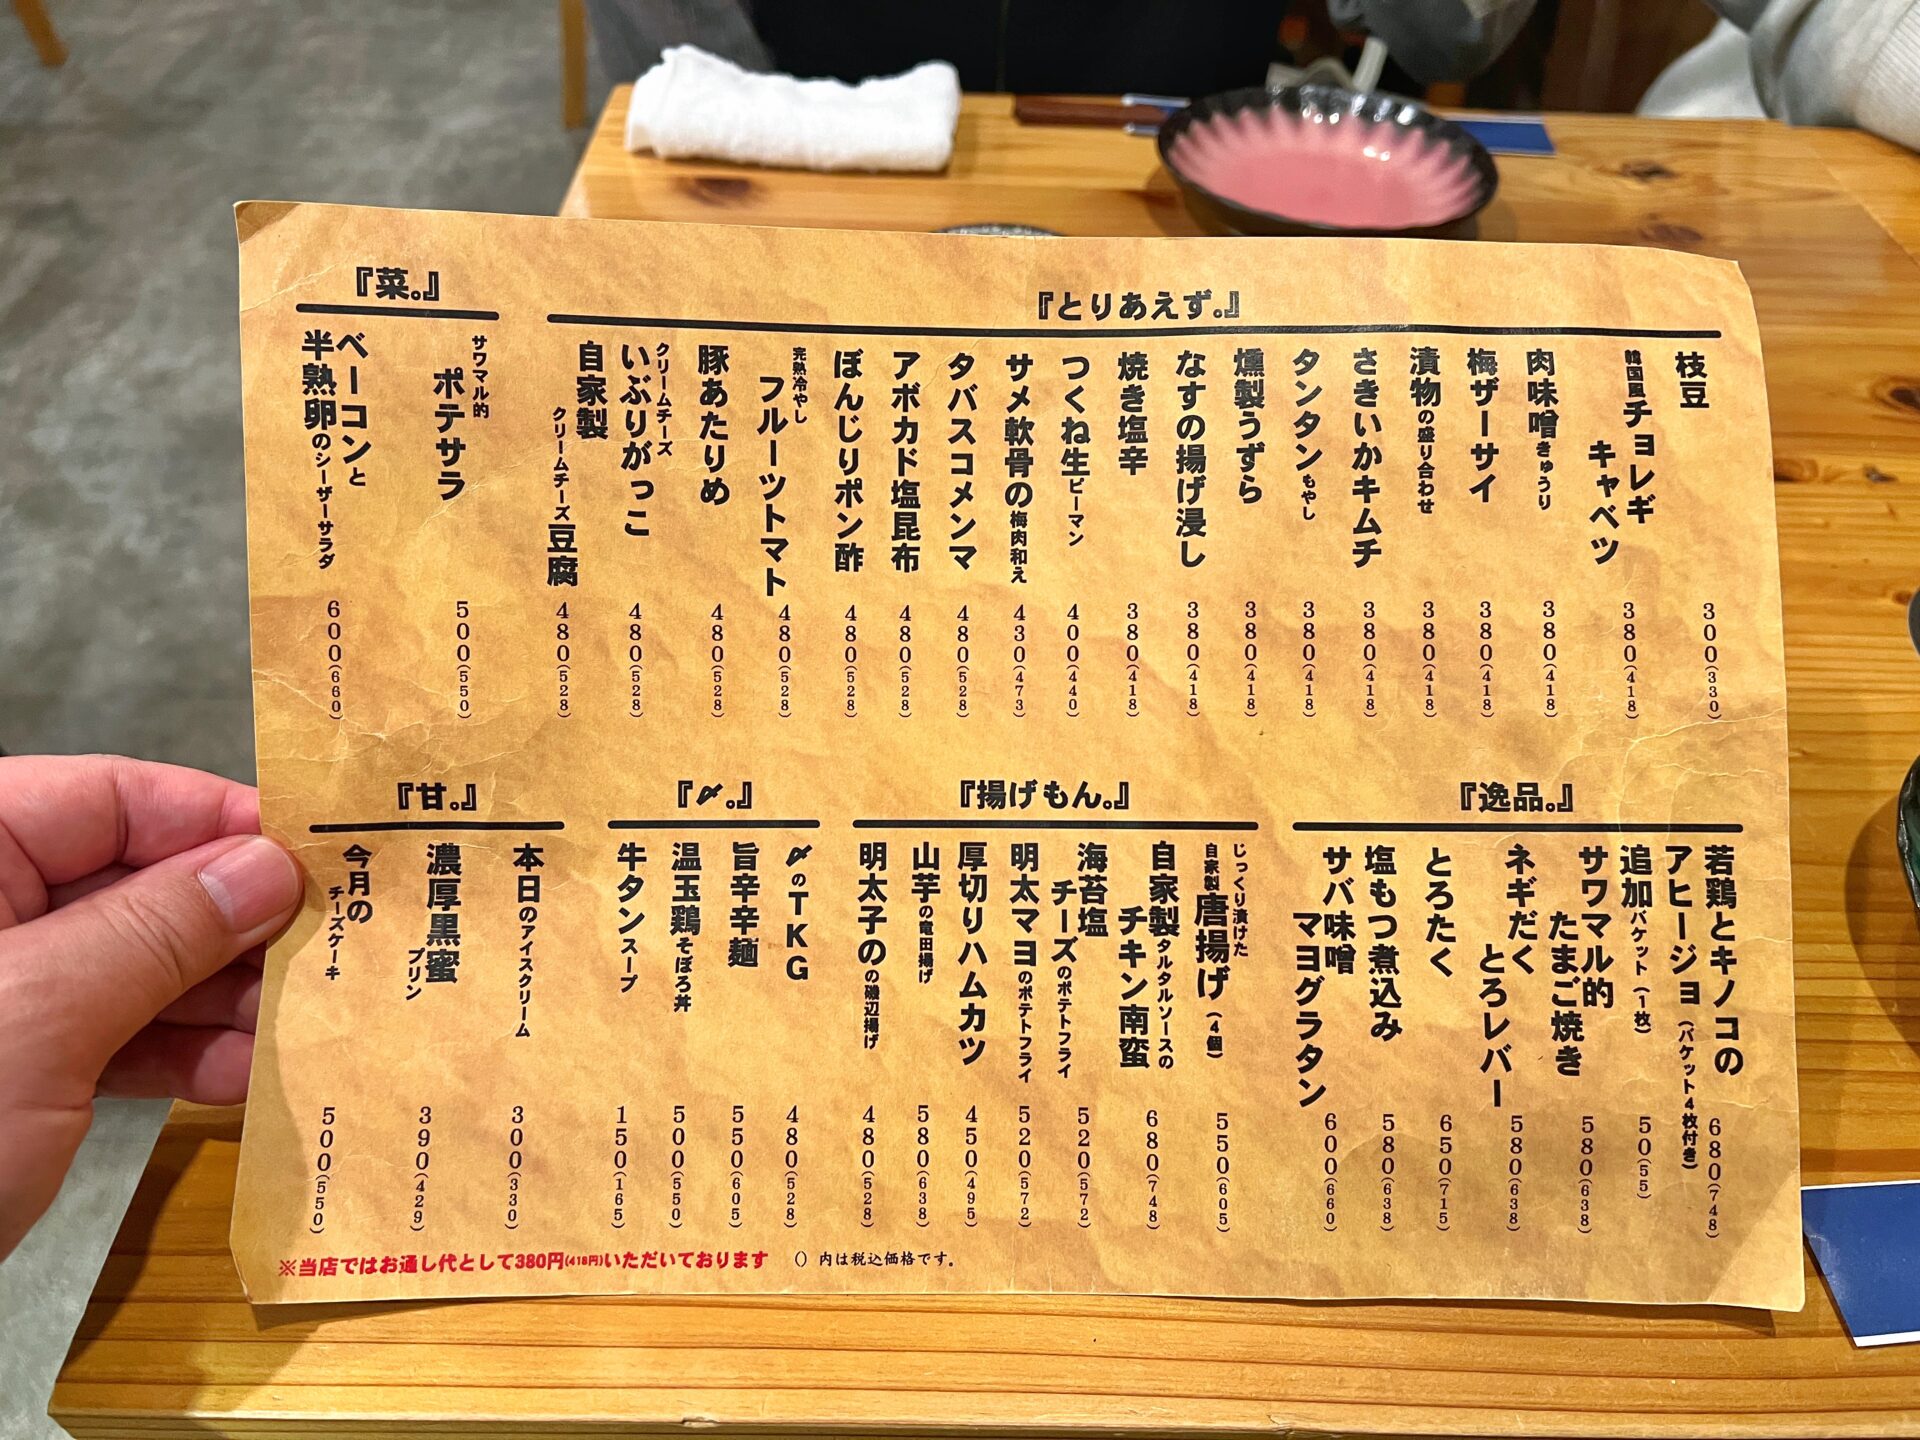 『とりあえず。』
枝豆 300(330)
韓国風チョレギ
キャベツ 380(418)
肉味噌きゅうり 380(418)
梅ザーサイ 380(418)
漬物の盛り合わせ 380(418)
さきいかキムチ 380(418)
タンタンもやし 380(418)
燻製うずら 380(418)
なすの揚げ浸し 380(418)
焼き塩辛 380(418)
つくね生ピーマン 400(440)
サメ軟骨の梅肉和え 430(473)
タバスコメンマ 480(528)
アボカド塩昆布 480(528)
ぼんじりポン酢 480(528)
完熟冷やし
フルーツトマト 480(528)
豚あたりめ 480(528)
クリームチーズ
いぶりがっこ 480(528)
自家製
クリームチーズ豆腐 480(528)
『菜。』
サワマル的
ポテサラ 500(550)
ベーコンと
半熟卵のシーザーサラダ 600(660)
『逸品。』
若鶏とキノコの
アヒージョ(バケット4枚付き) 680(748)
追加バケット(1枚) 50(55)
サワマル的
たまご焼き 580(638)
ネギだく
とろレバー 580(638)
とろたく 650(715)
塩もつ煮込み 580(638)
サバ味噌
マヨグラタン 600(660)
『揚げもん。』
じっくり漬けた
自家製唐揚げ(4個) 550(605)
自家製タルタルソースの
チキン南蛮 680(748)
海苔塩
チーズのポテトフライ 520(572)
明太マヨのポテトフライ 520(572)
厚切りハムカツ 450(495)
山芋の竜田揚げ 580(638)
明太子のの磯辺揚げ 480(528)
『〆。』
〆のTKG 480(528)
旨辛辛麺 550(605)
温玉鶏そぼろ丼 500(550)
牛タンスープ 150(165)
『甘。』
本日のアイスクリーム 300(330)
濃厚黒蜜
プリン 390(429)
今月の
チーズケーキ 500(550)
※当店ではお通し代として380円(418円)いただいております
()内は税込価格です。